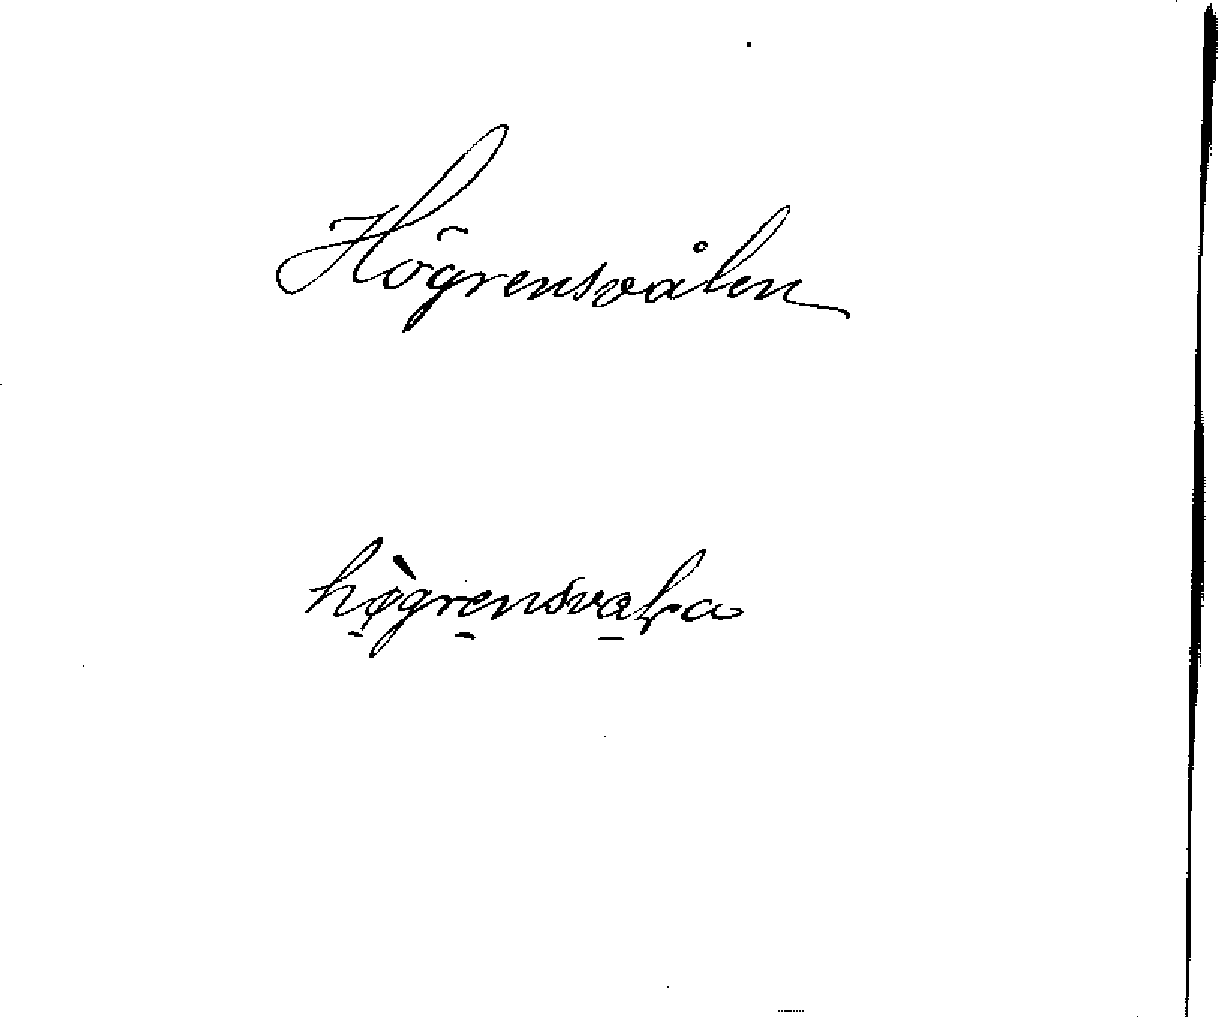 Högrensvålen
hø̱̀gre̱nsva̱ła